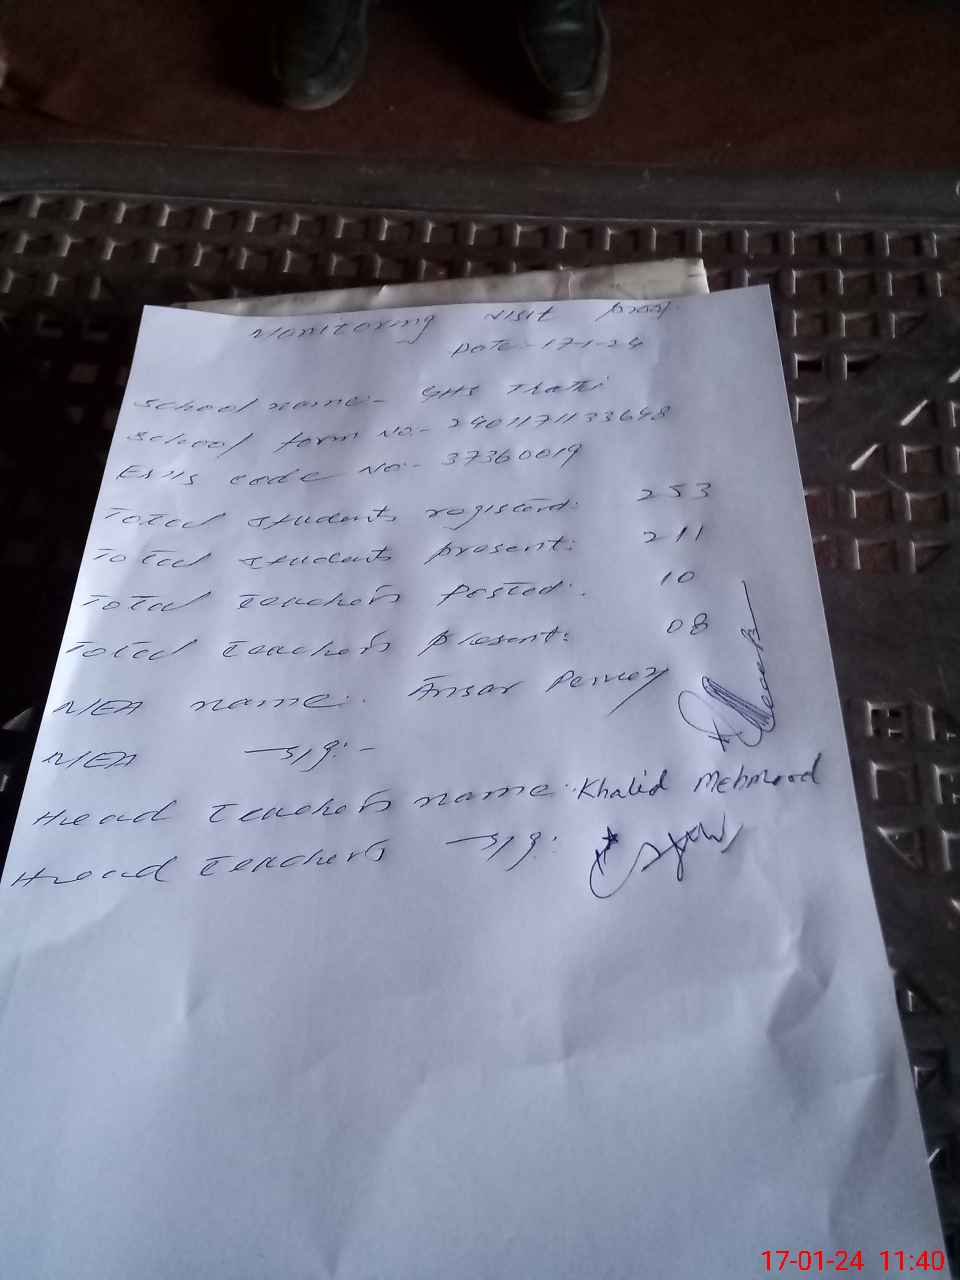 Monitoring visit proof
Date:- 17-1-24
School name:- GHS Thathi
School form No:- 2401171133648
EMIS code No:- 37360019
Total students registerd: 253
Total students present: 211
Total teachers posted: 10
Total teachers present: 08
MEA name: Ansar Pervez
MEA sig:-
Head teachers name: Khalid Mehmood
Head teachers sig:
17-01-24 11:40